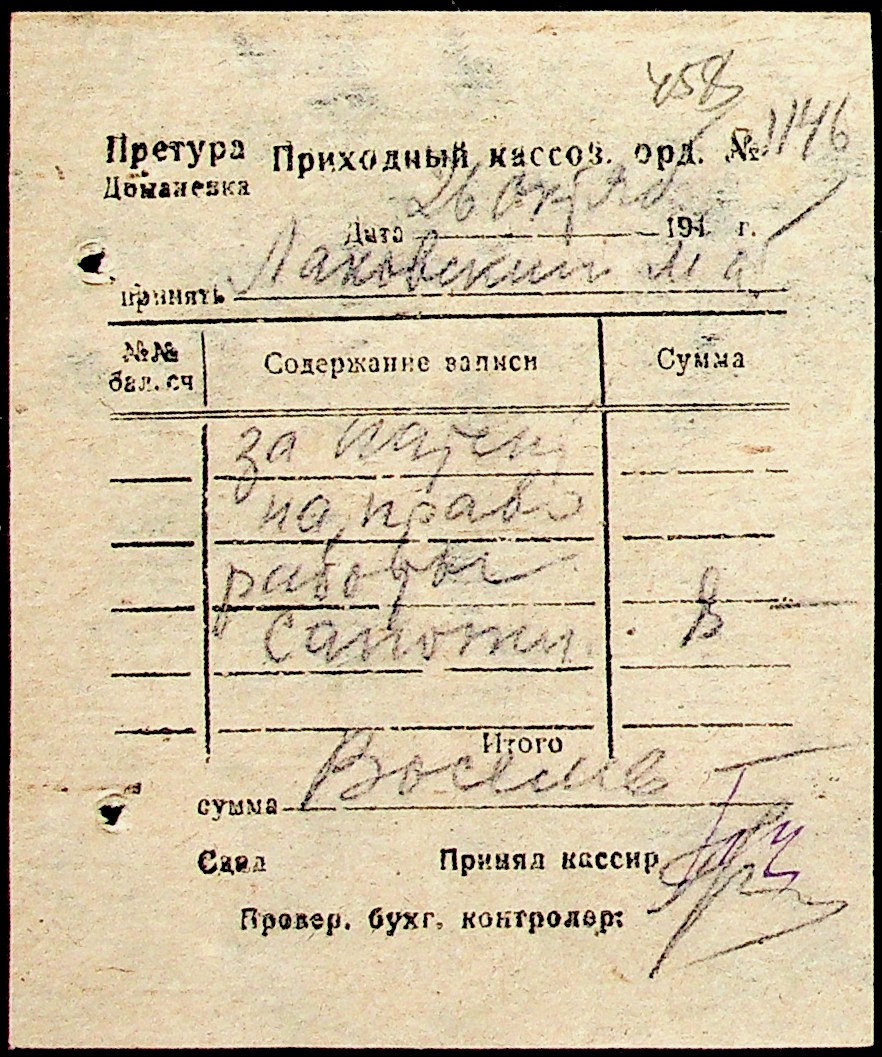 458
Претура Приходный кассов. орд. № 1146
Доманевка
26 Октяб
Дата 194 г.
принять Лановский М
№№ бал. сч Содержание записи Сумма
за патент
на право
работы
Сапожн. 8
Итого
сумма Восемь
Сдал Принял кассир
Провер. бухг. контролер: